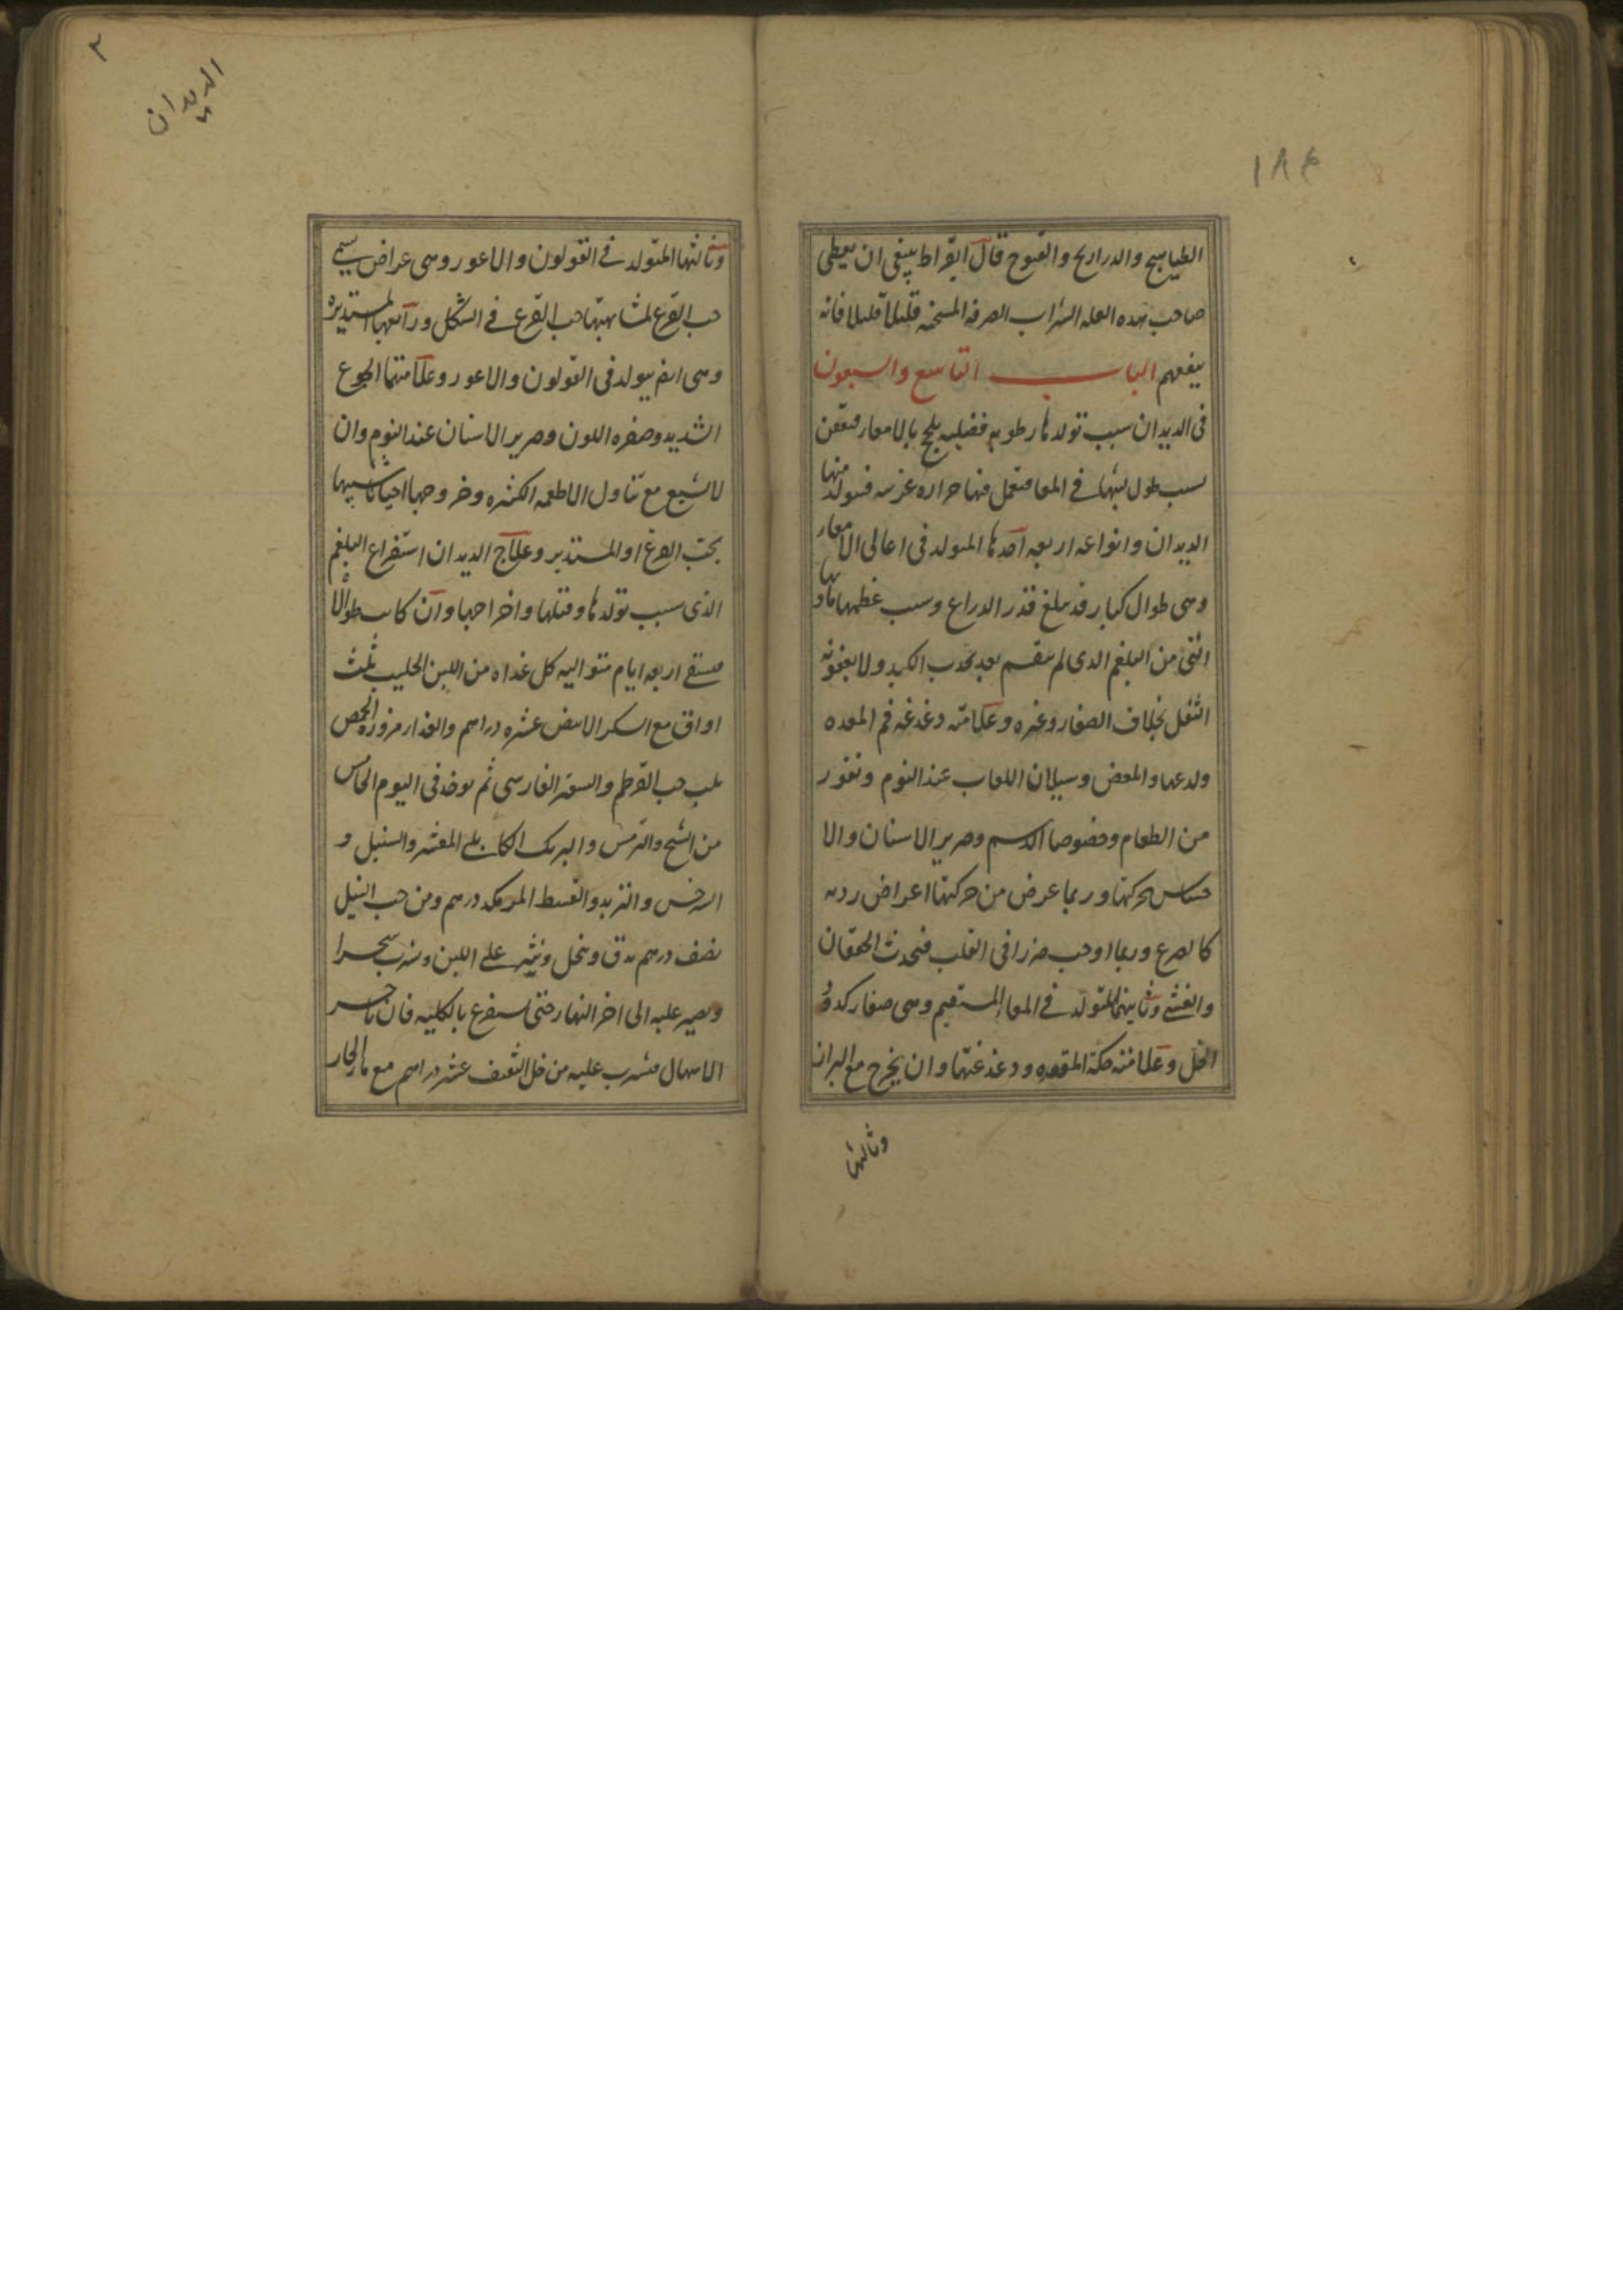 ١٨٤
الطياهيج والدراريج والقبوج قال ابقراط ينبغى ان يعطى
صاحب هذه العله الشراب الصرفه المسخنه قليلا قليلا فانه
ينفعهم الباب التاسع والسبعون
فى الديدان سبب تولدها رطوبه فضليه يلحج بالامعاء فتعفن
بسبب طول لبثها فى المعا فتعمل فيها حراره غرىبه فيتولد منها
الديدان وانواعه اربعه احدها المتولد فى اعالى الامعاء
وهى طوال كبار قد يبلغ قدر الدراع وسبب عظمها مادتها
التى من البلغم الدى لم ينقسم بعد بجذب الكبد ولا بعفونه
الثفل بخلاف الصغار وغيره وعلامته دغدغه فم المعده
ولدعها والمغص وسيلان اللعاب عند النوم ونفور
من الطعام وخصوصا الدسم وصرير الاسنان والا
حساس بحركتها وربما عرض من حركتها اعراض رديه
كالصرع وربما اوجب ضررا فى القلب فيحدث الخفقان
والغشى وثانيتها المتولد فى المعاء المستقيم وهى صغار كدود
الخل وعلامته حكة المقعده ودغدغتها وان يخرج مع البراز
وثالثها
٢
الديدان
وثالثها المتولد فى القولون والاعور وهى عراض يسمى
حب القرع لمشابهتها حب القرع فى الشكل ورابعها المستديره
وهى ايضا يتولد فى القولون والاعور وعلامتها الجوع
الشديد وصفره اللون وصرير الاسنان عند النوم وان
لا يشبع مع تناول الاطعمه الكثيره وخروجها احيانا شبيها
بحب القرع او المستدير وعلاج الديدان استفراغ البلغم
الذى سبب تولدها وقتلها واخراجها وان كانت طوالا
فيسقى اربعه ايام متواليه كل غداه من اللبن الحليب ثلث
اواق مع السكر الابيض عشره دراهم والغذاء مزوره الحمص
بلب حب القرطم والسعتر الفارسى ثم يوخذ فى اليوم الخامس
من الشيح والترمس والبرنك الكابلى المقشر والسنبل و
السرخس والتربد والقسط المر من كل درهم ومن حب النيل
نصف درهم يدق وينخل وينثر على اللبن ويشرب سحرا
ويصبر عليه الى اخر النهار حتى يستفرغ بالكليه فان تاخر
الاسهال فيشرب عليه من خل الثقيف عشر دراهم مع ماء الحار